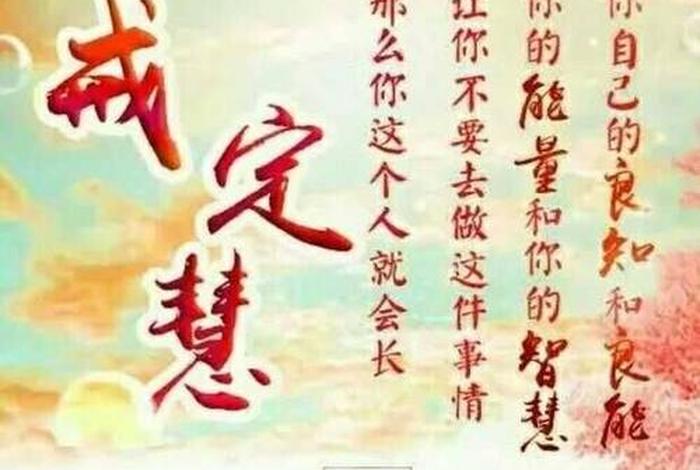 你自己的良知和良能
你的能量和你的智慧
让你不要去做这件事情
那么你这个人就会长
戒
定
慧